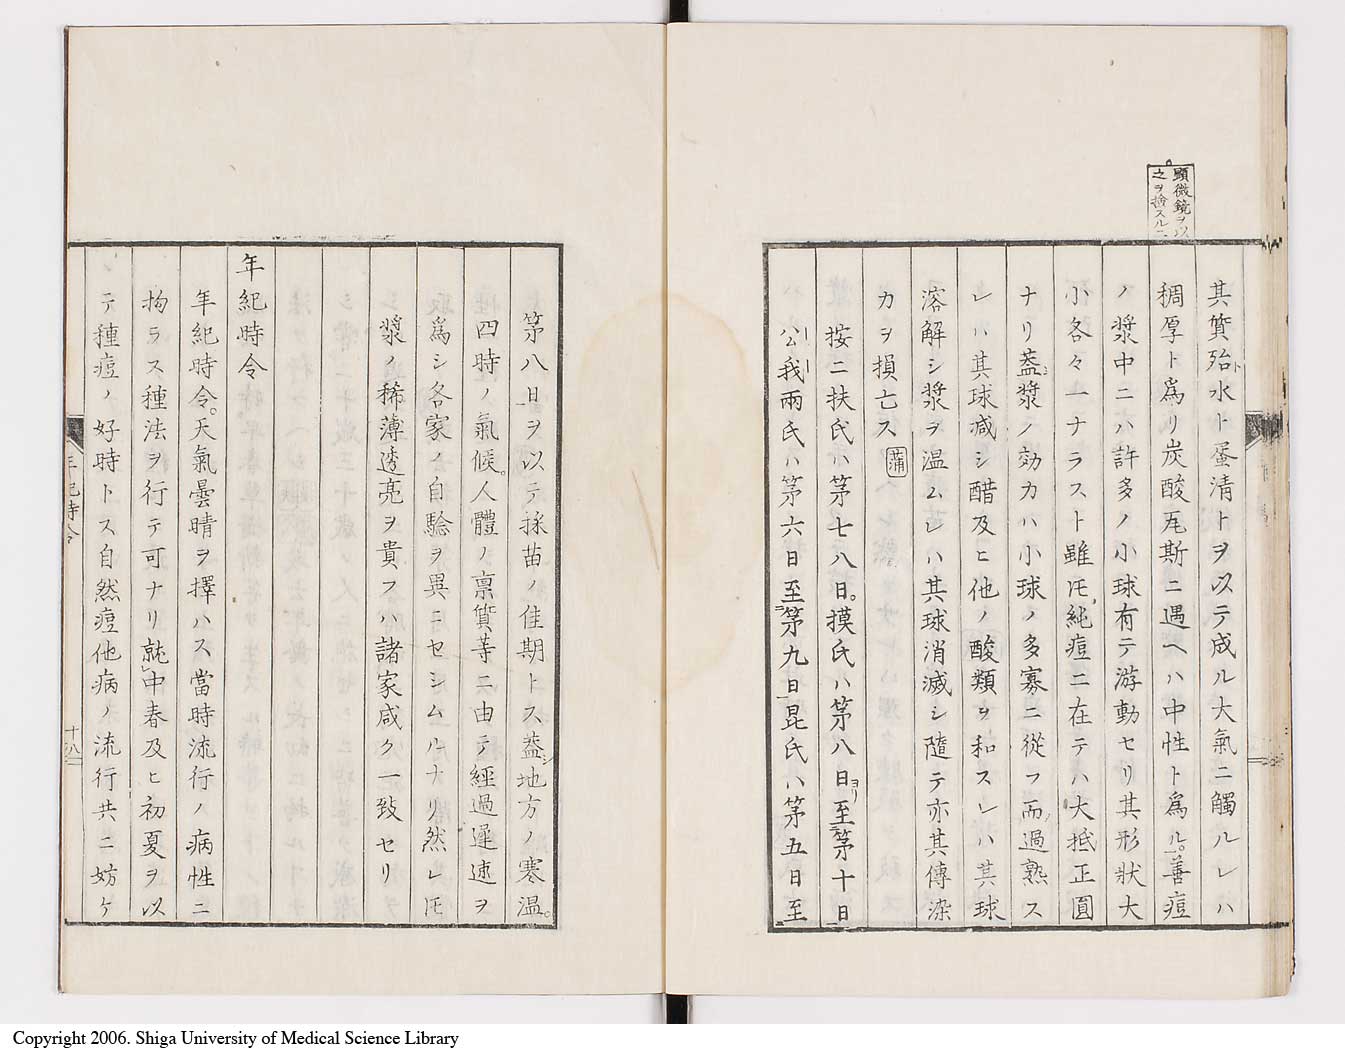 顕微鏡ヲ以
之ヲ檢スルニ
其質殆ト水ト蛋清トヲ以テ成ル大氣ニ觸ルレハ
稠厚ト為リ炭酸瓦斯ニ遇ヘハ中性ト為ル。善痘
ノ漿中ニハ許多ノ小球有テ游動セリ其形狀大
小各々一ナラスト雖𪜈純痘ニ在テハ大抵正圓
ナリ蓋シ漿ノ効力ハ小球ノ多寡ニ從フ而過熟ス
レハ其球减シ醋及ヒ他ノ酸類ヲ和スレハ其球
溶解シ漿ヲ温ムレハ其球消滅シ隨テ亦其傳染
力ヲ損亡ス 蒲
按ニ扶氏ハ第七八日。摸氏ハ第八日ヨリ至第十日
公我兩氏ハ第六日至第九日昆氏ハ第五日至
第八日ヲ以テ採苗ノ佳期トス蓋シ地方ノ寒温。
四時ノ氣候。人體ノ禀質等ニ由テ經過遲速ヲ
爲シ各家ノ自驗ヲ異ニセシムルナリ然レ𪜈
漿ノ稀薄透亮ヲ貴フハ諸家咸ク一致セリ
年紀時令
年紀時令。天氣曇晴ヲ擇ハス當時流行ノ病性ニ
拘ラス種法ヲ行テ可ナリ就中春及ヒ初夏ヲ以
テ種痘ノ好時トス自然痘他病ノ流行共ニ妨ケ
年紀時令
十八
Copyright 2006. Shiga University of Medical Science Library